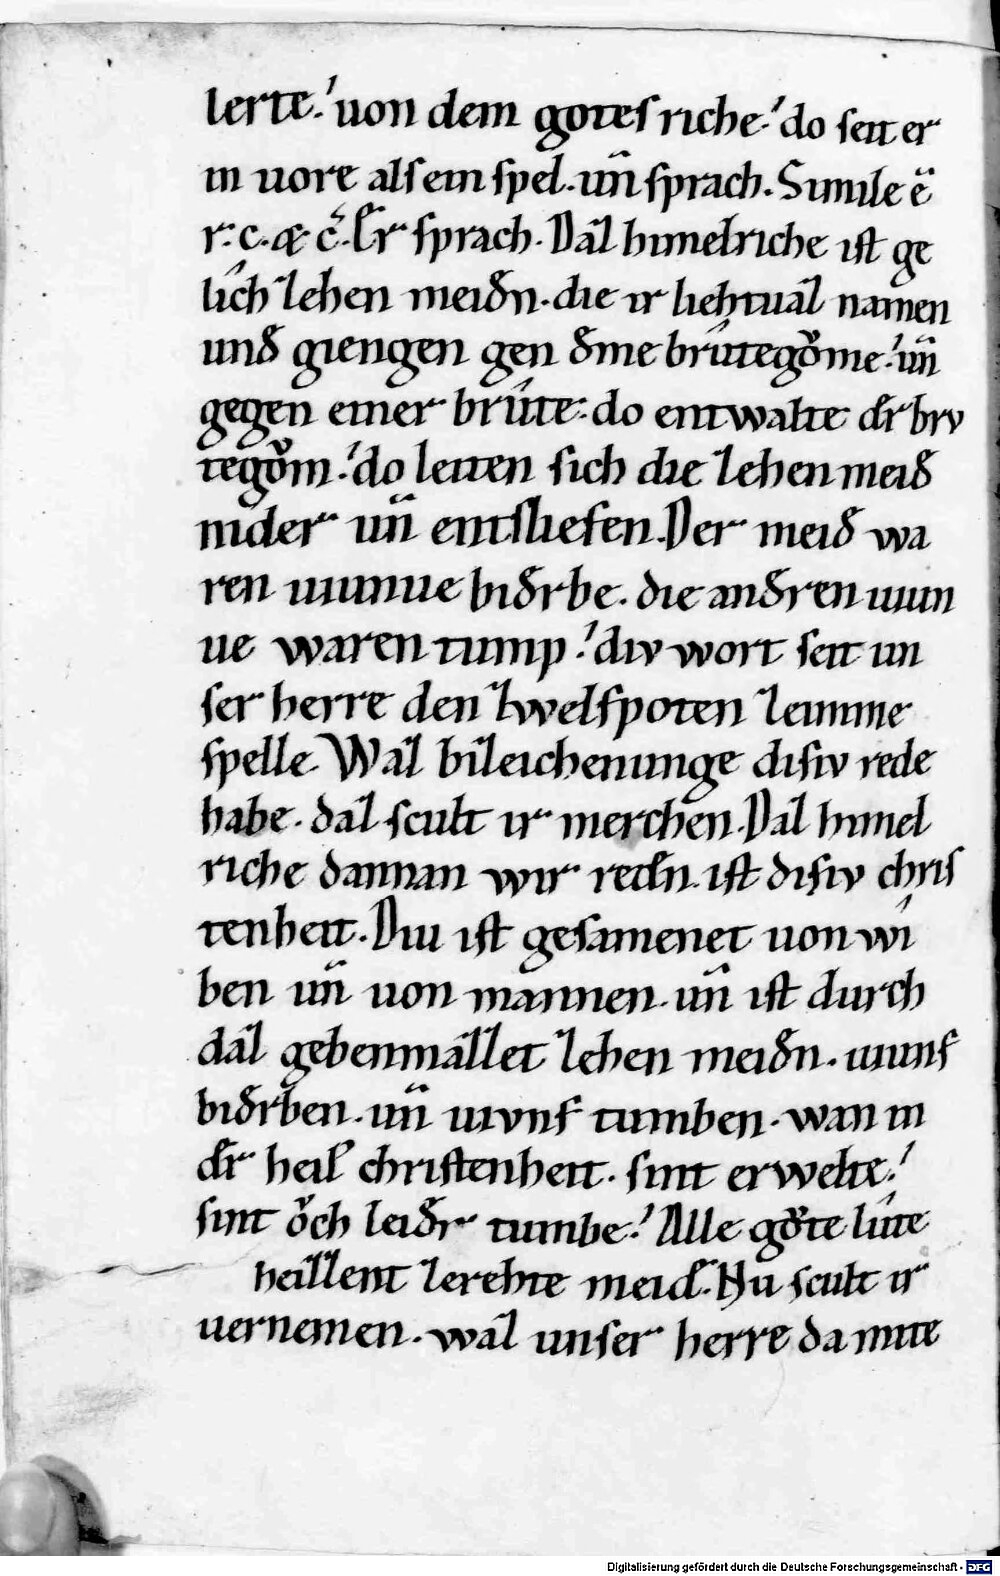 lerte. von dem gotes riche. do seit er
in vore als ein spel. un̄ sprach. Simile ē
r. c. æ c̄. Er sprach. Daz himelriche ist ge
lich zehen meiđn. die ir liehtuaz namen
unđ giengen gen đme brûtegǒme. un̄
gegen einer brûte. do entwalte đr brv
tegǒm. do leiten sich die zehen meiđ
nider un̄ entsliefen. Der meiđ wa
ren uiunue biđrbe. die anđren uiun
ue waren tump. div wort seit un
ser herre den zwelfpoten zeinme
spelle. Waz bileichenunge disiv rede
habe. daz scult ir merchen. Daz himel
riche dannan wir redn̄. ist disiv chris
tenheit. Diu ist gesamenet uon wi
ben un̄ uon mannen. un̄ ist durch
daz gebenmazzet zehen meiđn. uiunf
biđrben. un̄ uivnf tumben. wan in
đr heil̄ christenheit. sint erwelte.
sint ǒch leiđr tumbe. Alle gǒte lûte
heizzent zerehte meiđ. Nu scult ir
uernemen. waz unser herre da mite
Digitalisierung gefördert durch die Deutsche Forschungsgemeinschaft - DFG